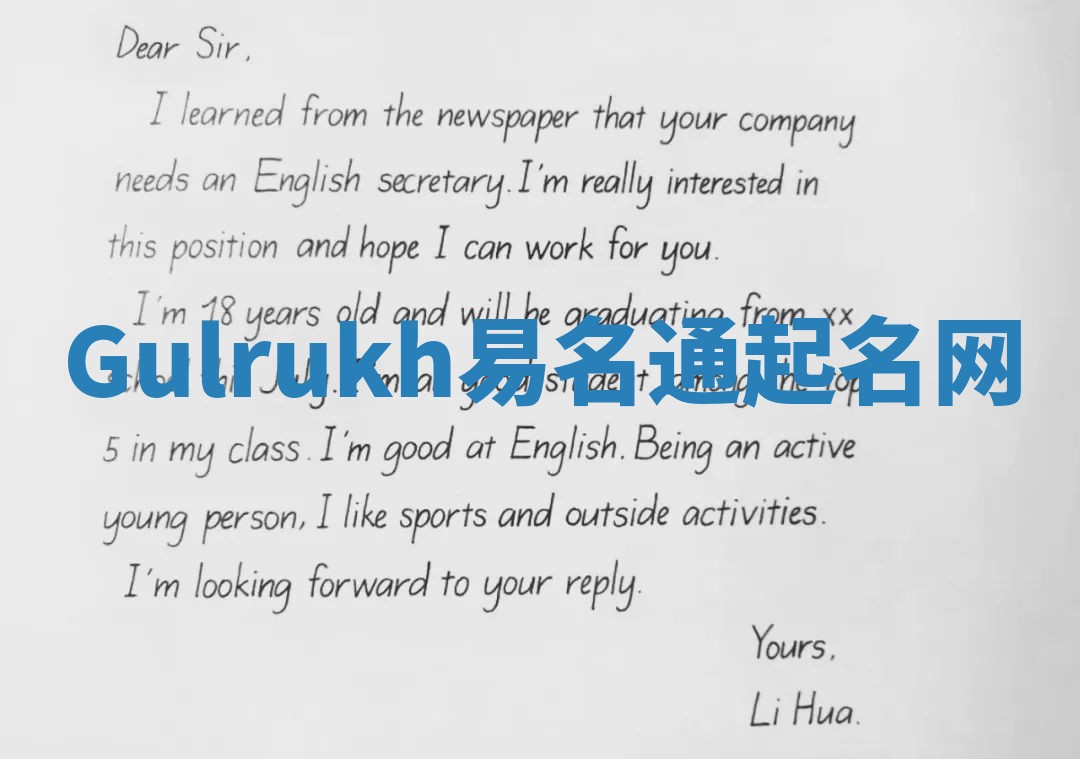 Dear Sir,
I learned from the newspaper that your company
needs an English secretary. I'm really interested in
this position and hope I can work for you.
I'm 18 years old and will be graduating from xx
Gulrukh易名通起名网
school this July. I'm a good student among the top
5 in my class. I'm good at English. Being an active
young person, I like sports and outside activities.
I'm looking forward to your reply.
Yours,
Li Hua.